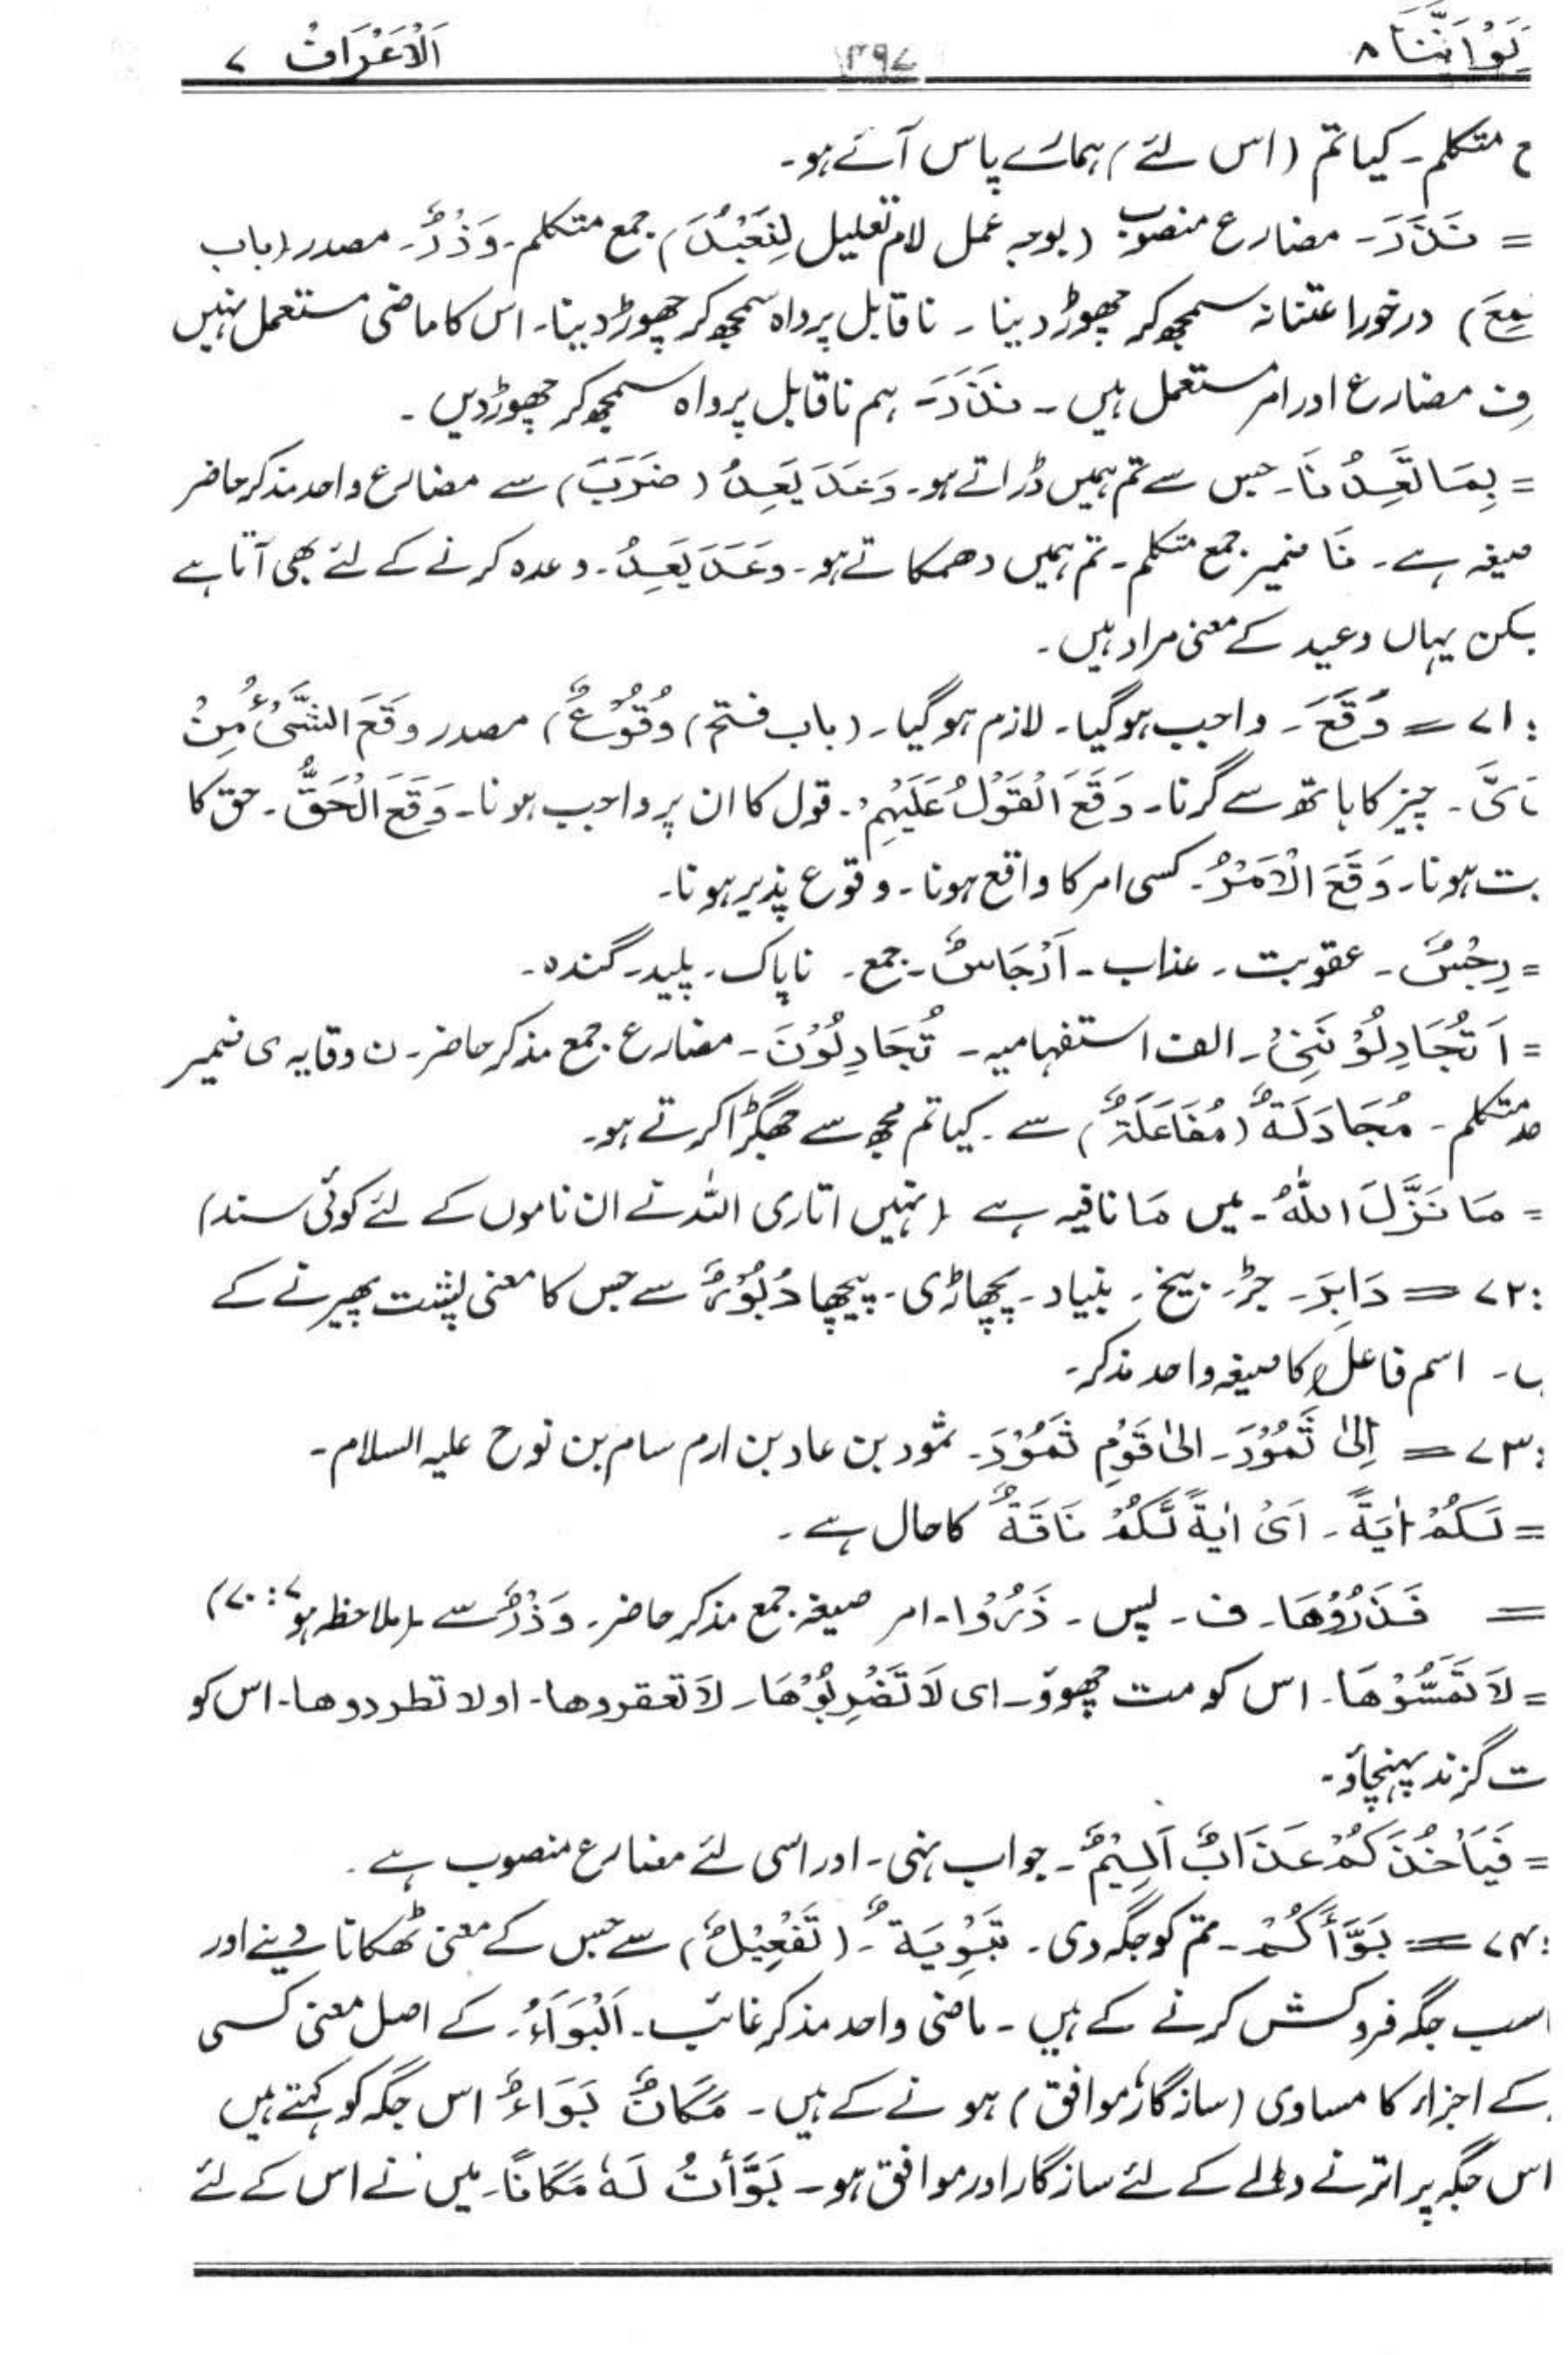 وَلَوْ اَنَّنَا ۸ ۳۹۷ اَلْاَعْرَافُ ۷
ع متکلم۔ کیا تم (اس لئے) ہمارے پاس آئے ہو۔
= نَذَرَ۔ مضارع منصوب (بوجہ عمل لام تعلیل لِنَعْبُدَ) جمع متکلم۔ وَذْرٌ۔ مصدر (باب
سَمِعَ) درخورِ اعتنا نہ سمجھ کر چھوڑ دینا ۔ ناقابل پرواہ سمجھ کر چھوڑ دینا۔ اس کا ماضی مستعمل نہیں
رف مضارع اور امر مستعمل ہیں ۔ نَذَرَ۔ ہم ناقابل پرواہ سمجھ کر چھوڑ دیں ۔
= بِمَا تَعِدُ نَا۔ جس سے تم ہمیں ڈراتے ہو۔ وَعَدَ یَعِدُ (ضَرَبَ) سے مضارع واحد مذکر حاضر
صیغہ ہے۔ نَا ضمیر جمع متکلم۔ تم ہمیں دھمکاتے ہو۔ وَعَدَ یَعِدُ۔ وعدہ کرنے کے لئے بھی آتا ہے
یکن یہاں وعید کے معنی مراد ہیں ۔
:۷۱ = وَقَعَ۔ واجب ہوگیا۔ لازم ہوگیا۔ (باب فتح) وُقُوْعٌ) مصدر وَقَعَ الشَّیْءُ مِنْ
یَدِیَّ۔ چیز کا ہاتھ سے گرنا۔ وَقَعَ الْقَوْلُ عَلَیْہِمْ۔ قول کا ان پر واجب ہونا۔ وَقَعَ الْحَقُّ۔ حق کا
بت ہونا۔ وَقَعَ الْاَمْرُ۔ کسی امر کا واقع ہونا۔ وقوع پذیر ہونا۔
= رِجْسٌ۔ عقوبت۔ عذاب۔ اَرْجَاسٌ۔ جمع۔ ناپاک۔ پلید۔ گندہ۔
= اَ تُجَادِلُوْ نَنِیْ۔ الف استفہامیہ۔ تُجَادِلُوْنَ۔ مضارع جمع مذکر حاضر۔ ن وقایہ ی ضمیر
حد متکلم۔ مُجَادَلَۃٌ (مُفَاعَلَۃٌ) سے۔ کیا تم مجھ سے جھگڑا کرتے ہو۔
= مَا نَزَّلَ اللّٰہُ۔ میں مَا نافیہ ہے (نہیں اتاری اللہ نے ان ناموں کے لئے کوئی سند)
:۷۲ = دَابِرَ۔ جڑ۔ بیخ۔ بنیاد۔ پچھاڑی۔ پیچھا دُبُوْرٌ سے جس کا معنی پشت پھیرنے کے
ں۔ اسم فاعل کا صیغہ واحد مذکر۔
:۷۳ = اِلیٰ ثَمُوْدَ۔ الیٰ قَوْمِ ثَمُوْدَ۔ ثمود بن عاد بن ارم سام بن نوح علیہ السلام۔
= لَکُمْ اٰیَۃً۔ اَیْ اٰیَۃً لَّکُمْ نَاقَۃٌ کا حال ہے۔
= فَذَرُوْھَا۔ ف۔ پس۔ ذَرُوْا۔ امر صیغہ جمع مذکر حاضر۔ وَذْرٌ سے (ملاحظہ ہو ۷:۷۰)
= لَا تَمَسُّوْھَا۔ اس کو مت چھوؤ۔ ای لَا تَضْرِبُوْھَا۔ لَا تعقروھا۔ اولا تطردوھا۔ اس کو
ت گزند پہنچاؤ۔
= فَیَاْخُذَکُمْ عَذَابٌ اَلِیْمٌ۔ جواب نہی۔ اور اسی لئے مضارع منصوب ہے۔
:۷۴ = بَوَّاَکُمْ۔ تم کو جگہ دی۔ تَبْوِیَۃٌ۔ (تَفْعِیْلٌ) سے جس کے معنی ٹھکانا دینے اور
اسب جگہ فروکش کرنے کے ہیں ۔ ماضی واحد مذکر غائب۔ اَلْبَوَاءُ۔ کے اصل معنی کسی
کے اجزاء کا مساوی (سازگار موافق) ہونے کے ہیں۔ مَکَانٌ بَوَاءٌ اس جگہ کو کہتے ہیں
اس جگہ پر اترنے والے کے لئے سازگار اور موافق ہو۔ بَوَّأتُ لَہٗ مَکَانًا۔ میں نے اس کے لئے